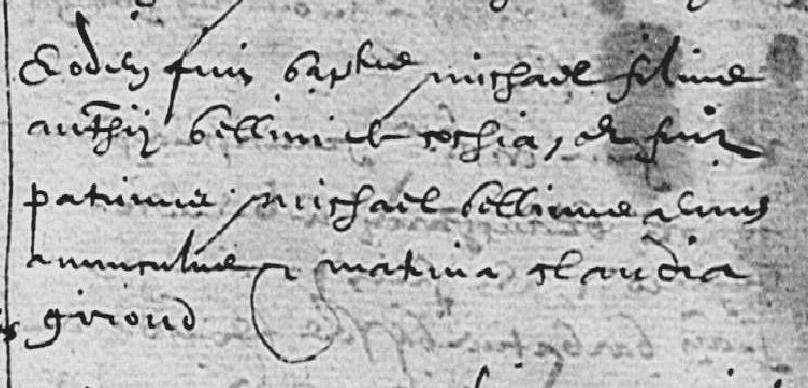 Eodem fuit baptus michael filius
anthii bellini et cochia, et fuit
patrinus michael bellinus eius
avunculus et matrina claudia
giroud